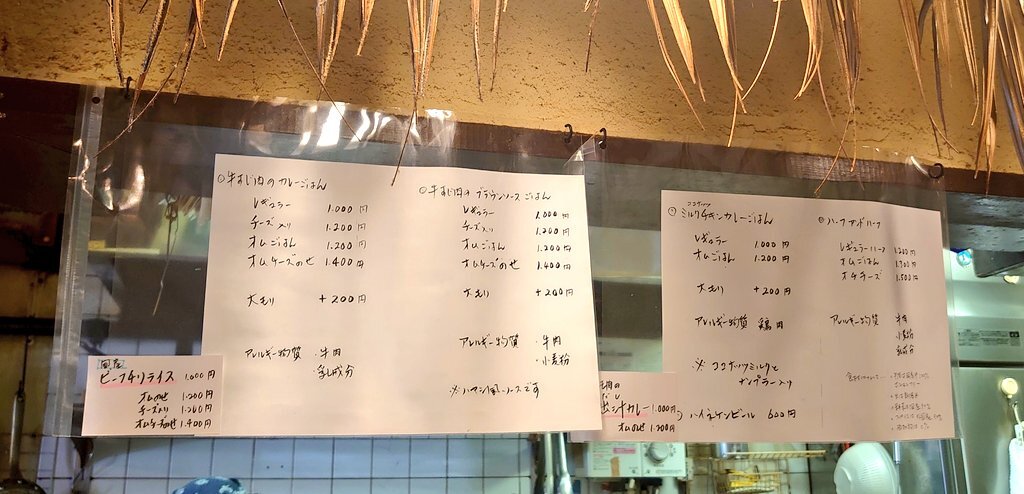 ◎牛すじ肉のカレーごはん
レギュラー 1.000円
チーズ入り 1.200円
オムごはん 1.200円
オムチーズのせ 1.400円
大もり +200円
アレルギー物質 ・牛肉
・乳成分
◎牛すじ肉のブラウンソースごはん
レギュラー 1.000円
チーズ入り 1.200円
オムごはん 1.200円
オムチーズのせ 1.400円
大もり +200円
アレルギー物質 ・牛肉
・小麦粉
※ハヤシ風ソースです
国産
ビーフチリライス 1.000円
オムのせ 1.200円
チーズ入り 1.200円
オムチーズのせ 1.400円
ココナッツ
ミルクチキンカレーごはん
レギュラー 1.000円
オムごはん 1.200円
大もり +200円
アレルギー物質 鶏肉
※ココナッツミルクと
ナンプラー入り
ハイネケンビール 600円
◎ハーフアンドハーフ
レギュラーハーフ 1.200円
オムごはん 1.300円
オムチーズ 1.500円
アレルギー物質 牛肉
小麦粉
乳成分
牛肉の
だし
出汁カレー 1.000円
オムのせ 1.200円